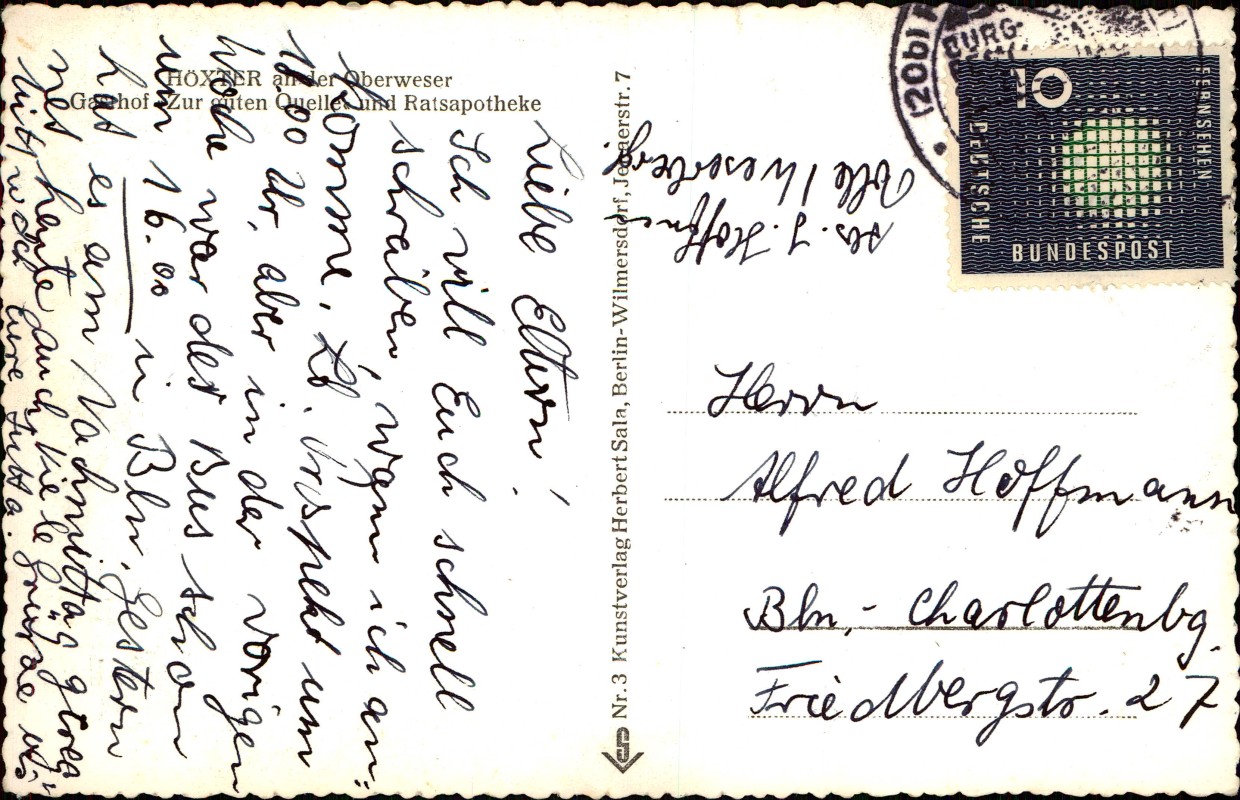 HÖXTER an der Oberweser
Gasthof „Zur guten Quelle“ und Ratsapotheke
Liebe Eltern!
Ich will Euch schnell
schreiben, wann ich an-
komme. Lt. Prospekt um
18.00 Uhr, aber in der vorigen
Woche war der Bus schon
um 16.00 in Bln. Gestern
hat es am Nachmittag
heute auch. Viele Grüße
Eure Jutta.
Nr. 3 Kunstverlag Herbert Sala, Berlin-Wilmersdorf, Jenaerstr. 7
Abs. J. Hoffm
Polle / Weserberg.
(20b)
BURG
10
FERNSEHEN
DEUTSCHE
BUNDESPOST
Herrn
Alfred Hoffmann
Bln.- Charlottenbg.
Friedbergstr. 27